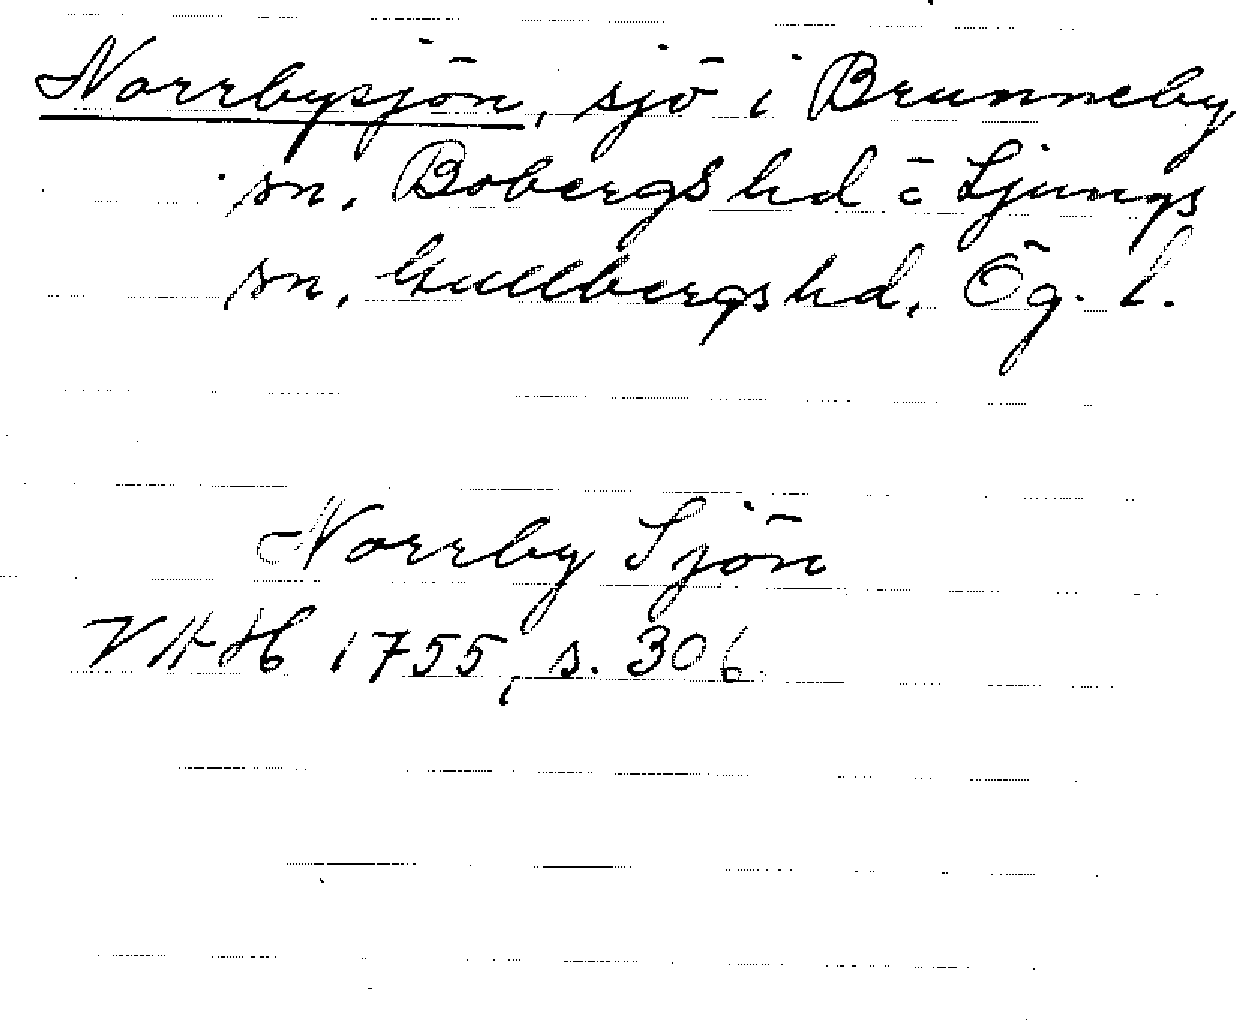 Norrbysjön, sjö i Brunneby
sn, Bobergs hd o Ljungs
sn, Gullbergs hd, Ög. l.
Norrby Sjön
VAH 1755, s. 306